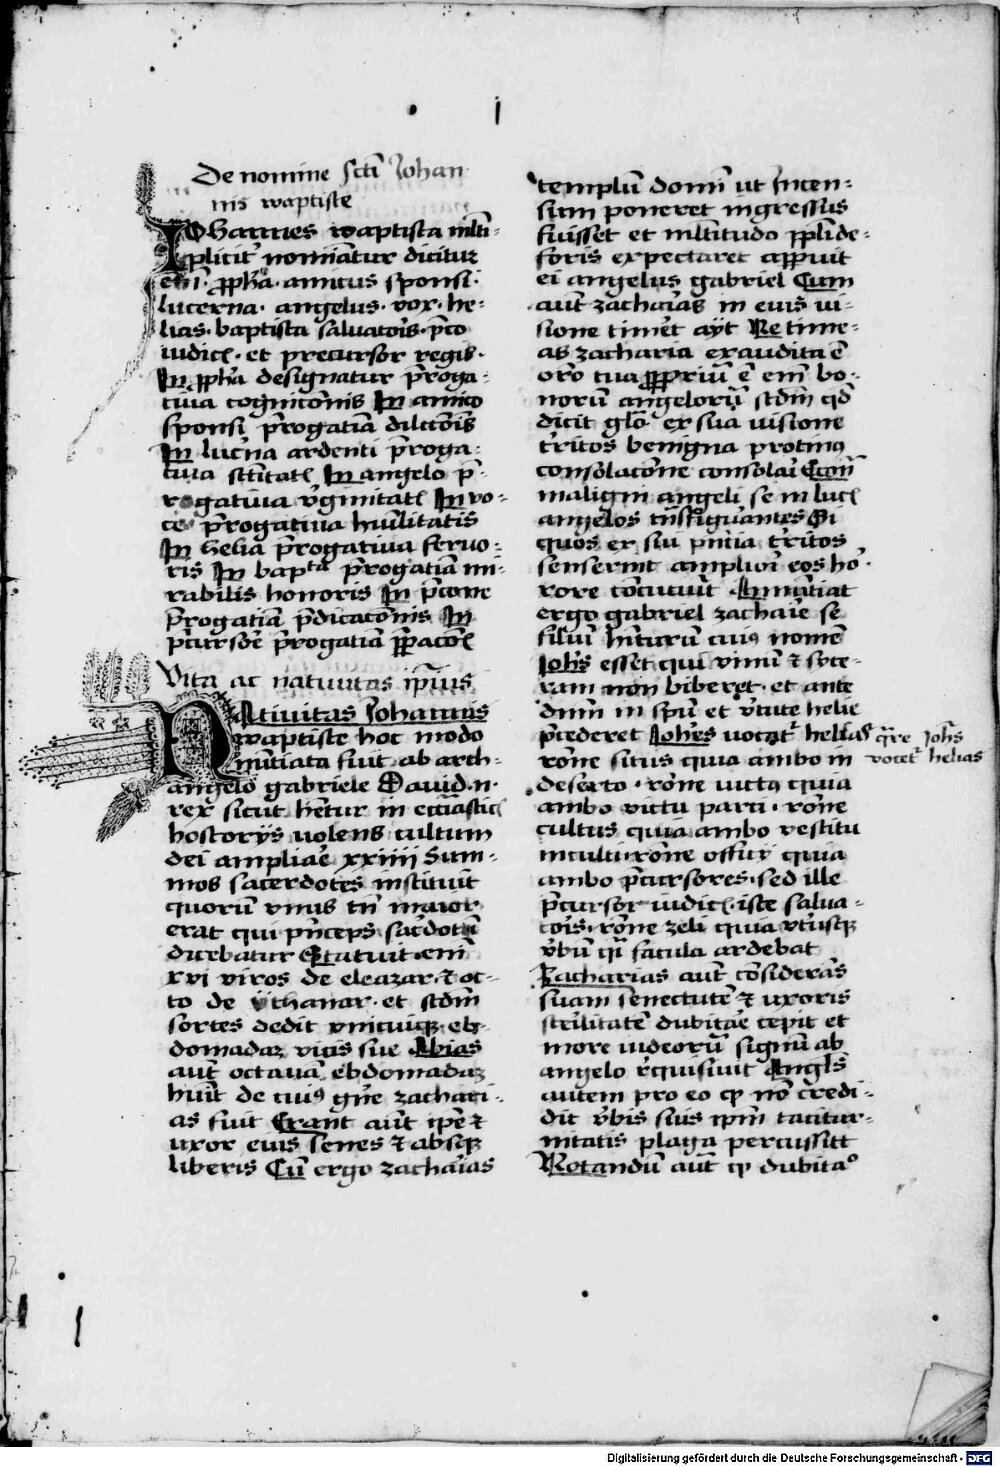 I
De nomine scti Johan
nis waptiste
Iohannes waptista mlti-
plicit' nomiatur dicitur
eni. ꝓph̄a. amicus sponsi.
lucerna. angelus. vox. he-
lias. baptista saluatoīs. p̄co
iudicꝭ. et precursor regis.
In ꝓph̄a designatur p̄roga-
tiua cognicōnis In amico
sponsi p̄rogatiā dilccōis
In luc̄na ardenti p̄roga-
tiua sc̄titatꝭ In angelo p̄-
rogatiua v̄ginitatꝭ In vo-
ce p̄rogatiua hūilitatis
In helia p̄rogatiua feruo-
ris In bapta p̄rogatiā mi-
rabilis honoris In p̄cone
p̄rogatiā p̄dicacōnis In
p̄cursoē p̄rogatiā p̄paracōꝭ
Vita ac natiuitas ip̄ius
Natiuitas Johannis
waptiste hoc modo
nūtiata fuit ab arch-
angelo gabriele Dauid .n.
rex sicut hētur in ecc̄iasticꝭ
hostorijs uolens cultum
dei ampliāe xxiiii sum-
mos sacerdotes instituit
quorū vnus tn̄ maior
erat qui p̄nceps sac̄dotū
dicebatur Statuit eni
xvi viros de eleazar. ⁊ oc-
to de ythamar. et scd̄m
sortes dedit vnicuiqꝫ eb-
domadaꝫ vicis sue Abias
aut̄ octauā ebdomadaꝫ
huit̄ de cuiꝰ gn̄e zachari-
as fuit Erant aut̄ ip̄e ⁊
uxor eius senes ⁊ absqꝫ
liberis Cū ergo zachaīas
templū domī ut incen-
sum poneret ingressus
fuisset et mltitudo ꝓpli de-
foris expectaret apparuit
ei angelus gabriel Cum
aut̄ zachaīas in eius ui-
sione timēt ayt Ne time-
as zacharia exaudita ē
or̄o tua ꝓpriū ē eni bo-
norū angelorū scd̄m qd
dicit glo. ex sua visione
t̄ritos benigna protinꝰ
consolacōne consolaī Econ̄
maligni angeli se in lucꝭ
angelos tn̄sfiguantes Si
quos ex sui p̄ntia t̄ritos
senserint amplioi eos ho-
rore cōcuciūt Annūtiat
ergo gabriel zachaīe se
filiū hiturū cuiꝰ nomē
Joh̄s esset qui vinū ⁊ sice-
ram non biberet. et ante
dn̄m in sp̄u et v̄tute helie
p̄cederet Joh̄es uocat' helias
rōne situs quia ambo in
deserto. rōne victꝰ quia
ambo victu parci. rōne
cultus quia ambo vestitu
inculti. rōne officij quia
ambo p̄cursores. sed ille
p̄cursor iudicꝭ. iste salua-
toīs. rōne zeli quia vt̄iusqꝫ
v̄bū q̄i facula ardebat
Zacharias aut̄ cōsiderās
suam senectutē ⁊ uxoris
st̄ilitatē dubitāe cepit et
more iudeorū signū ab
angelo r̄quisiuit Angl̄s
autem pro eo qꝫ nō credi-
dit v̄bis suis ip̄m tacitur-
nitatis plaga percussitt
Notandū aut̄ qꝫ dubitao
q̄re Joh̄s
vocet' helias
Digitalisierung gefördert durch die Deutsche Forschungsgemeinschaft - DFG